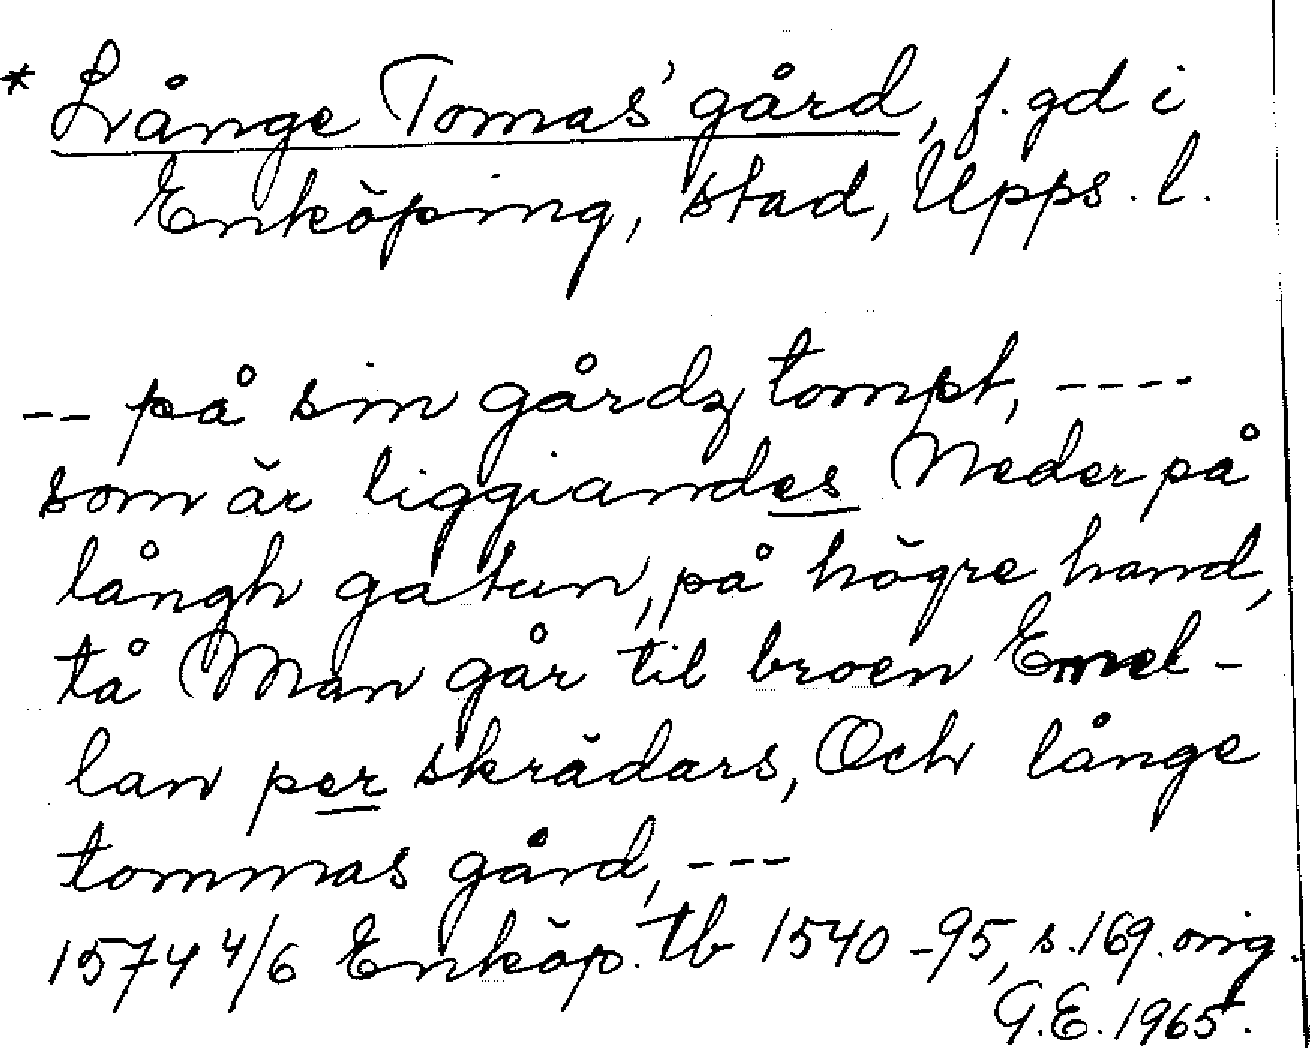 * Långe Tomas' gård, f. gd i
Enköping, stad, Upps. l.
-- på sin gårdz tompt, ----
som är liggiandes Neder på
långh gatun, på högre hand,
tå Man går til broen Emel-
lan per skrädars, Och långe
tommas gård, ---
1574 4/6 Enköp. tb 1540-95, s. 169. orig.
G.E. 1965.